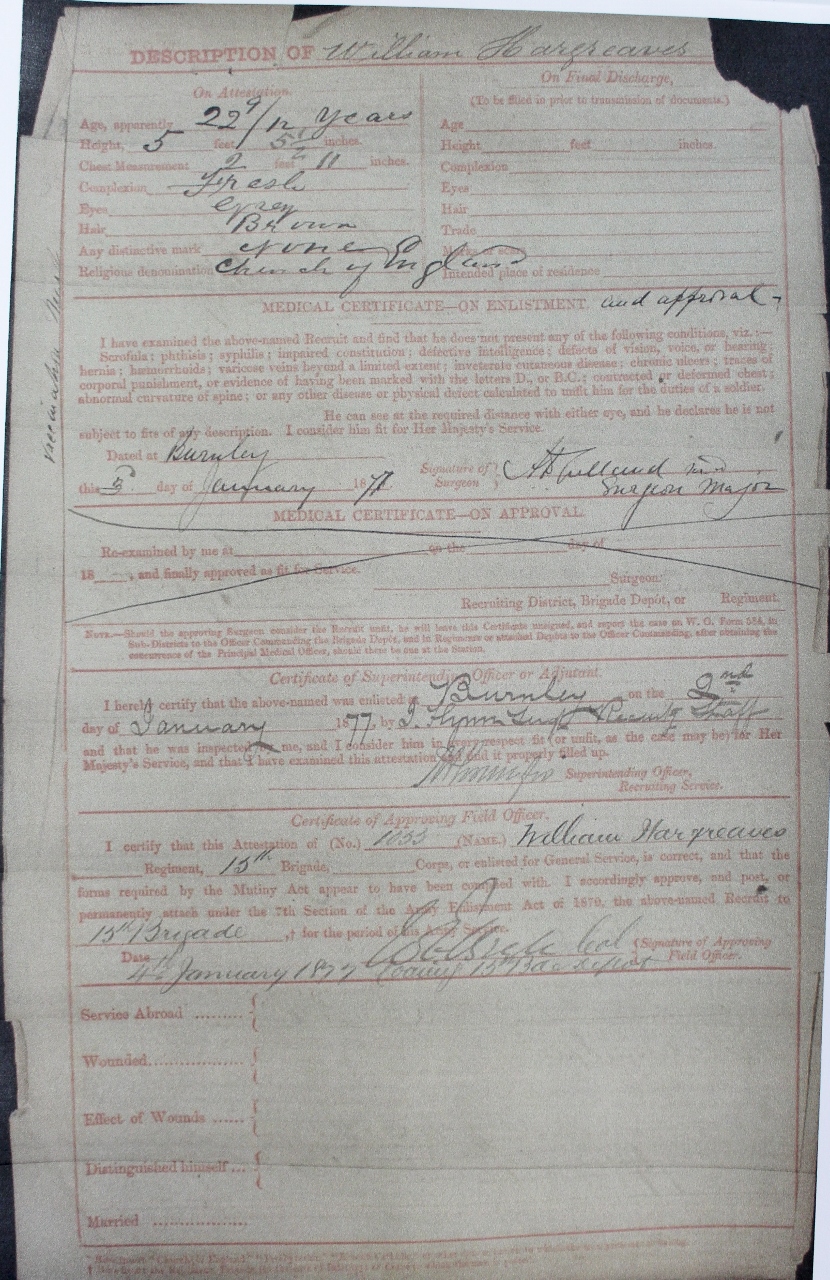 DESCRIPTION OF William Hargreaves
On Attestation.
Age, apparently 22 9/12 years
Height, 5 feet 5 inches.
Chest Measurement 2 feet 11 inches.
Complexion Fresh
Eyes Grey
Hair Brown
Any distinctive mark None
Religious denomination Church of England
On Final Discharge,
(To be filled in prior to transmission of documents.)
Age
Height feet inches.
Complexion
Eyes
Hair
Trade
Marks or scars
Intended place of residence
MEDICAL CERTIFICATE—ON ENLISTMENT. and approval
I have examined the above-named Recruit and find that he does not present any of the following conditions, viz.:—
Scrofula; phthisis; syphilis; impaired constitution; defective intelligence; defects of vision, voice, or hearing;
hernia; hæmorrhoids; varicose veins beyond a limited extent; inveterate cutaneous disease; chronic ulcers; traces of
corporal punishment, or evidence of having been marked with the letters D., or B.C.; contracted or deformed chest;
abnormal curvature of spine; or any other disease or physical defect calculated to unfit him for the duties of a soldier.
He can see at the required distance with either eye, and he declares he is not
subject to fits of any description. I consider him fit for Her Majesty's Service.
Dated at Burnley
this 3 day of January 1877. Signature of Surgeon
Surgeon Major
Vaccination
MEDICAL CERTIFICATE—ON APPROVAL.
Re-examined by me at on the day of
18 , and finally approved as fit for Service.
Surgeon.
Recruiting District, Brigade Depôt, or Regiment.
NOTE.—Should the approving Surgeon consider the Recruit unfit, he will leave this Certificate unsigned, and report the case on W. O. Form 534, in
Sub-Districts to the Officer Commanding the Brigade Depôt, and in Regiments or attached Depôts to the Officer Commanding, after obtaining the
concurrence of the Principal Medical Officer, should there be one at the Station.
Certificate of Superintending Officer or Adjutant.
I hereby certify that the above-named was enlisted at Burnley on the 2nd
day of January 1877, by Staff
and that he was inspected by me, and I consider him in every respect fit (or unfit, as the case may be) for Her
Majesty's Service, and that I have examined this attestation and find it properly filled up.
Superintending Officer,
Recruiting Service.
Certificate of Approving Field Officer.
I certify that this Attestation of (No.) 1033 (NAME.) William Hargreaves
Regiment, 15th Brigade, Corps, or enlisted for General Service, is correct, and that the
forms required by the Mutiny Act appear to have been complied with. I accordingly approve, and post, or
permanently attach under the 7th Section of the Army Enlistment Act of 1870, the above-named Recruit to
15th Brigade ,† for the period of his Army Service.
Col (Signature of Approving
Field Officer.
Date 4th January 1877 15th Depot
Service Abroad
Wounded
Effect of Wounds
Distinguished himself
Married